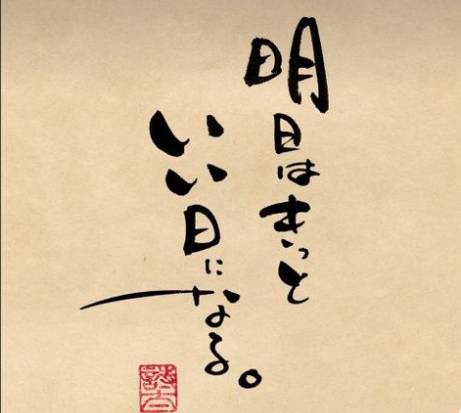 明日はきっと
いい日になる。